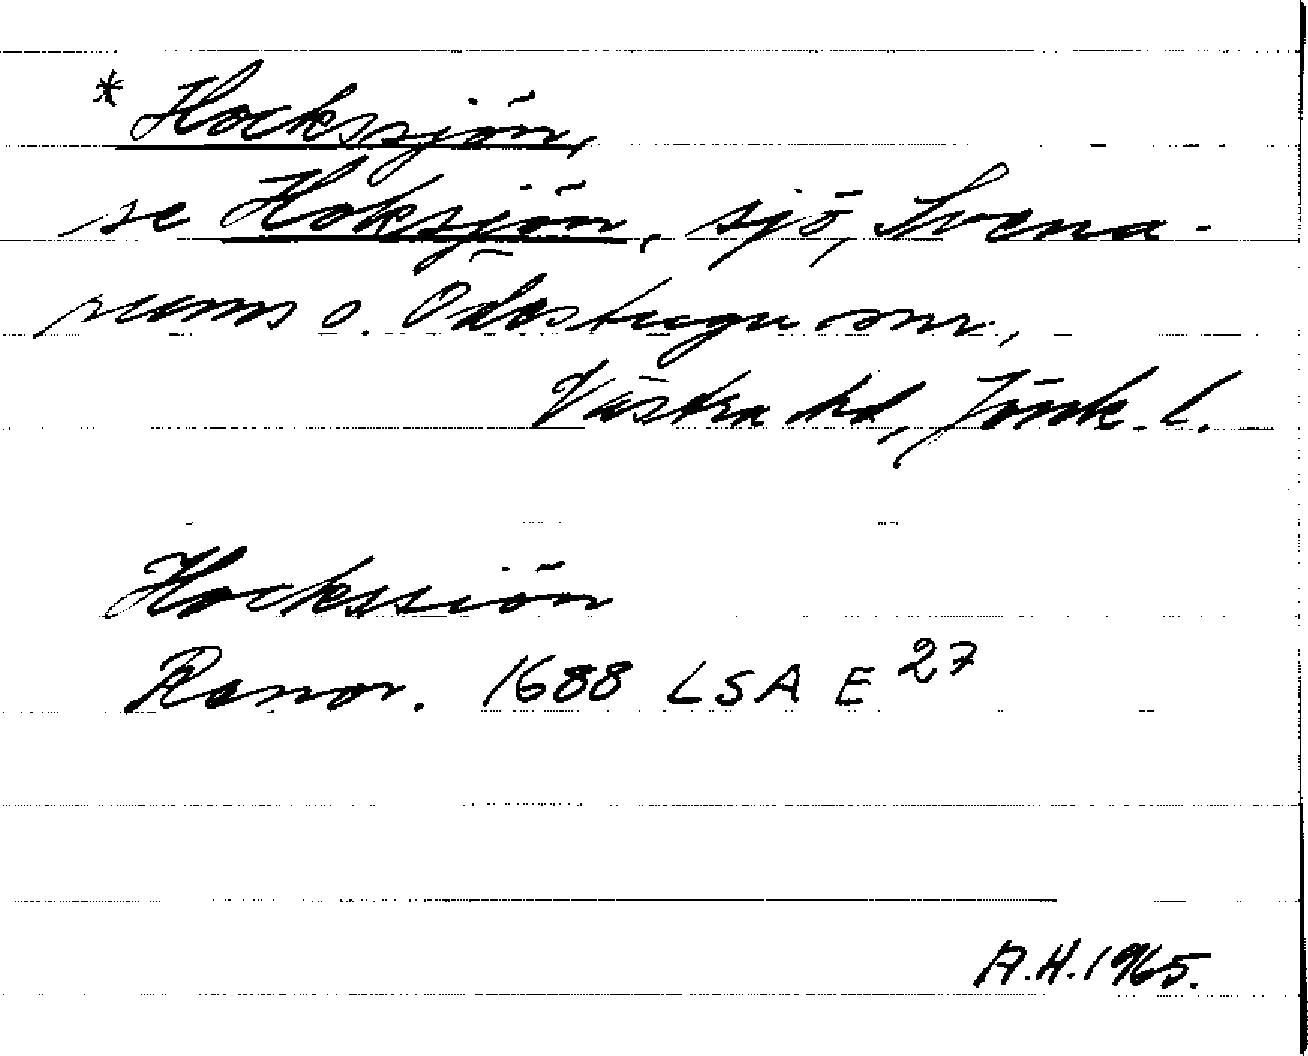 * Hockssjön,
se Hoksjön, sjö, Svena-
rums o. Ödestugu snr,
Västra hd, Jönk. l.
Hockssiön
Rannr. 1688 LSA E 27
A.H. 1965.